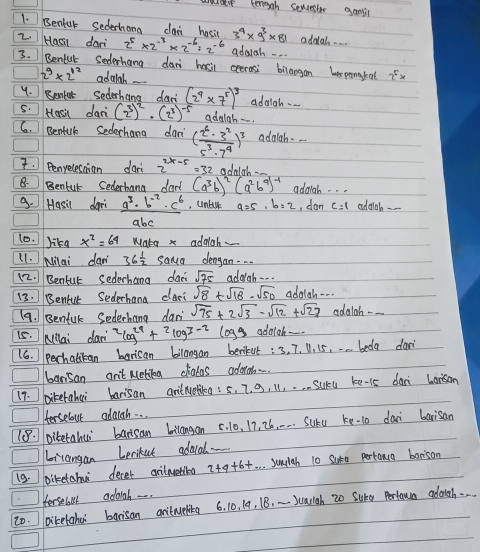 tengah semester ganjil
1. Bentuk sederhana dari hasil 3⁴ × 9³ × 81 adalah ---
2. Hasil dari 2⁵ × 2⁻³ × 2⁻⁶ : 2⁻⁶ adalah ---
3. Bentuk sederhana dari hasil operasi bilangan berpangkat 2⁵ ×
2⁹ × 2⁰² adalah ---
4. Bentuk sederhana dari (2⁴ × 7⁵)³ adalah ---
5. Hasil dari (2³)² . (2³)⁻⁵ adalah ---
6. Bentuk sederhana dari (2⁶ . 3² / 5³ . 7⁴)³ adalah ---
7. Penyelesaian dari 2²ˣ⁻⁵ = 32 adalah ---
8. Bentuk sederhana dari (a³b)² (a²b⁴)⁻¹ adalah ...
9. Hasil dari a³ . b⁻² . c⁶ / abc , untuk a=5 , b=2, dan c=1 adalah ---
10. Jika x² = 64 maka x adalah ---
11. Nilai dari 36 ½ sama dengan ---
12. Bentuk sederhana dari √75 adalah ---
13. Bentuk sederhana dari √8 + √18 - √50 adalah ---
14. Bentuk sederhana dari √75 + 2√3 - √12 + √27 adalah ---
15. Nilai dari ²log²⁴ + ²log3 - ² log9 adalah ---
16. Perhatikan barisan bilangan berikut : 3, 7, 11, 15, --- beda dari
barisan aritmetika diatas adalah ---
17. Diketahui barisan aritmetika : 5, 7, 9, 11, --- Suku ke-15 dari barisan
tersebut adalah ---
18. Diketahui barisan bilangan 5, 10, 17, 26, --- Suku ke-10 dari barisan
bilangan berikut adalah ---
19. Diketahui deret aritmetika 2+4+6+... Jumlah 10 suku pertama barisan
tersebut adalah ---
20. Diketahui barisan aritmetika 6, 10, 14, 18, --- Jumlah 20 suku pertama adalah ---